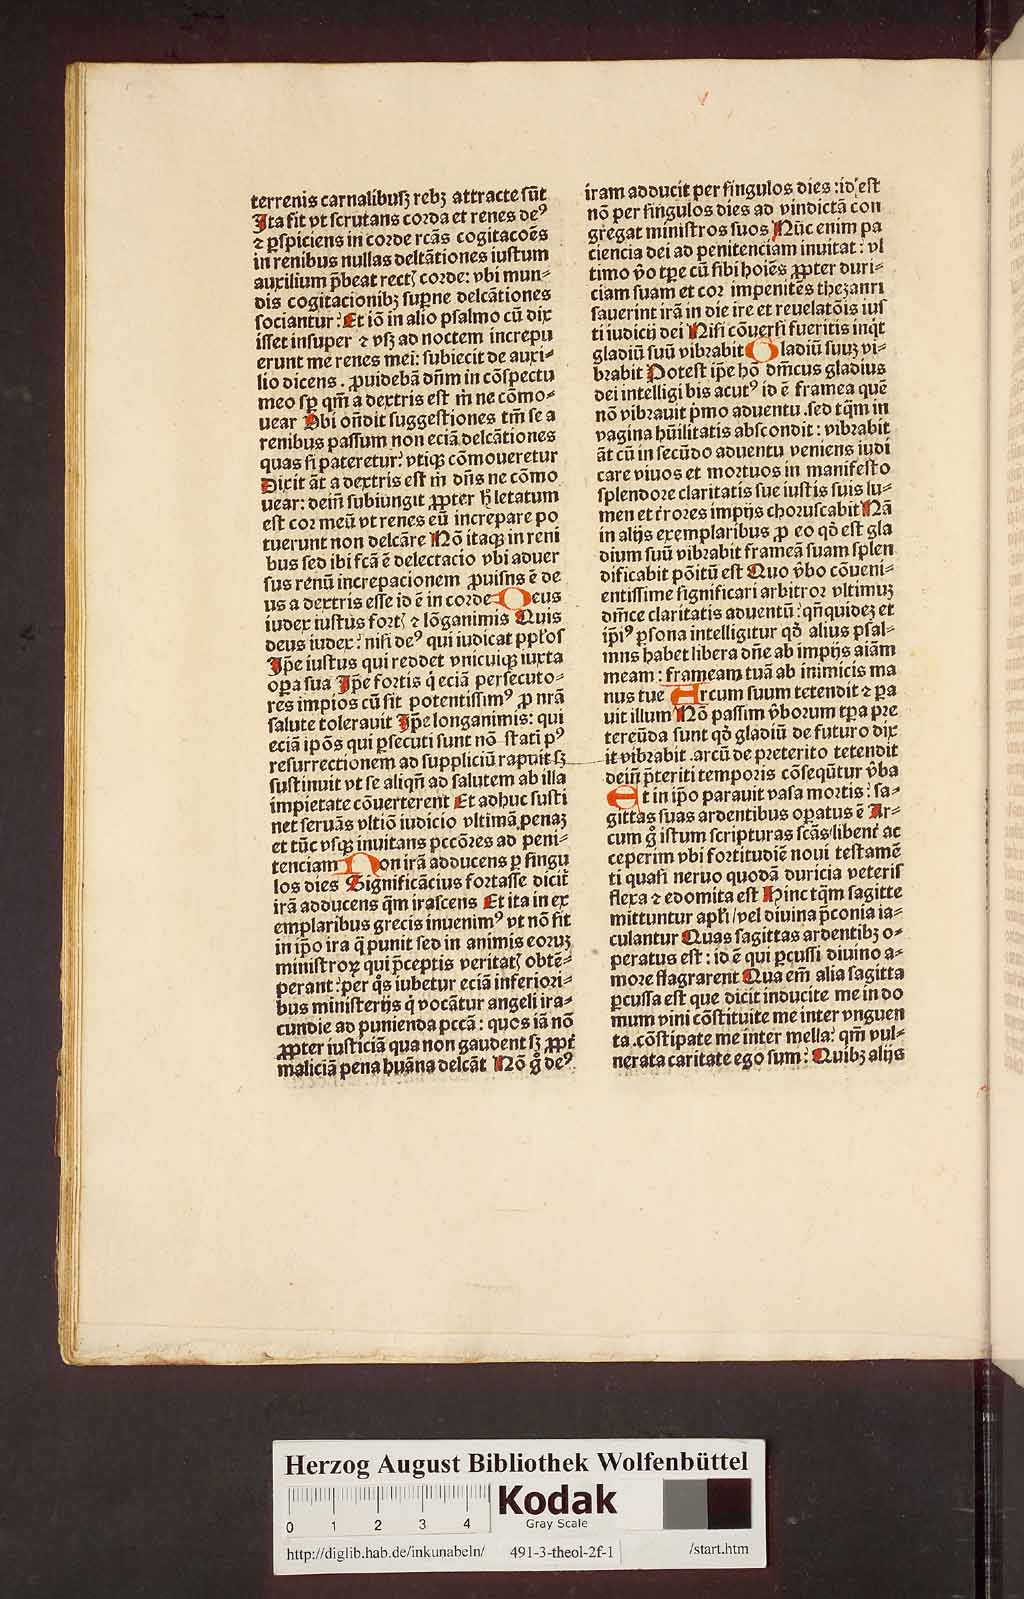 terrenis carnalibusꝫ rebꝫ attracte sūt
Ita fit vt scrutans corda et renes deꝰ
⁊ ꝑspiciens in corde rcās cogitacoēs
in renibus nullas deltātiones iustum
auxilium p̄beat rectꝭ corde: vbi mun⸗
dis cogitacionibꝫ suꝑne delcātiones
sociantur: Et iō in alio psalmo cū dix
isset insuper ⁊ vsꝫ ad noctem increpu
erunt me renes mei: subiecit de auxi⸗
lio dicens . ꝓuidebā dn̄m in cōspectu
meo sꝑ qm̄ a dextris est m̄ ne cōmo⸗
uear Vbi on̄dit suggestiones tm̄ se a
renibus passum non eciā delcātiones
quas si pateretur: vtiqꝫ cōmoueretur
Dixit āt a dextris est m̄ dn̄s ne cōmo
uear: dein̄ subiungit ꝓpter h̄ letatum
est cor meū vt renes eū increpare po
tuerunt non delcāre Nō itaqꝫ in reni
bus sed ibi fcā ē delectacio vbi aduer
sus renū increpacionem ꝓuisus ē de
us a dextris esse id ē in corde Deus
iudex iustus fortꝭ ⁊ lōganimis Quis
deus iudex: nisi deꝰ qui iudicat ppl̄os
Ip̄e iustus qui reddet vnicuiqꝫ iuxta
oꝑa sua Ip̄e fortis q̄ eciā persecuto⸗
res impios cū sit potentissimꝰ ꝓ nrā
salute tolerauit Ip̄e longanimis: qui
eciā ip̄os qui ꝑsecuti sunt nō stati pꝰ
resurrectionem ad suppliciū rapuit sꝫ
sustinuit vt se aliqn̄ ad salutem ab illa
impietate cōuerterent Et adhuc susti
net seruās vltīo iudicio vltimā penaꝫ
et tūc vsqꝫ inuitans pccōres ad peni⸗
tenciam Non irā adducens ꝑ singu
los dies Significācius fortasse dicit̄
irā adducens q̄m irascens Et ita in ex
emplaribus grecis inuenimꝰ vt nō sit
in ip̄o ira q̄ punit sed in animis eoruꝫ
ministroꝝ qui p̄ceptis veritatꝭ obtē⸗
perant: per q̊s iubetur eciā inferiori⸗
bus ministerijs q̄ vocātur angeli ira⸗
cundie ad punienda pccā: quos iā nō
ꝓpter iusticiā qua non gaudent sꝫ ꝓpt̄
maliciā pena huāna delcāt Nō g̊ deꝰ
iram adducit per singulos dies :id est
nō per singulos dies ad vindictā con
gregat ministros suos Nūc enim pa
ciencia dei ad penitenciam inuitat: vl
timo v̄o tꝑe cū sibi hoīes ꝓpter duri⸗
ciam suam et cor impenitēs thezauri
sauerint irā in die ire et reuelatōis ius
ti iudicij dei Nisi cōuersi fueritis inq̄t
gladiū suū vibrabit Gladiū suuꝫ vi⸗
brabit Potest ip̄e hō dm̄cus gladius
dei intelligi bis acutꝰ id ē framea quē
nō vibrauit p̄mo aduentu .sed tq̄m in
vagina hūilitatis abscondit: vibrabit
āt cū in secūdo aduentu veniens iudi
care viuos et mortuos in manifesto
splendore claritatis sue iustis suis lu⸗
men et t̄rores impijs choruscabit Nā
in alijs exemplaribus ꝓ eo qd̄ est gla
dium suū vibrabit frameā suam splen
dificabit pōitū est Quo v̄bo cōueni⸗
entissime significari arbitror vltimuꝫ
dm̄ce claritatis aduentū: qn̄quidez et
ip̄iꝰ ꝑsona intelligitur qd̄ alius psal⸗
mus habet libera dn̄e ab impijs aiām
meam: frameam tuā ab inimicis ma
nus tue Arcum suum tetendit ⁊ ꝑa
uit illum Nō passim v̄borum tꝑa pre
tereūda sunt qd̄ gladiū de futuro dix
it vibrabit .arcū de preterito tetendit
dein̄ p̄teriti temporis cōsequūtur v̄ba
Et in ip̄o parauit vasa mortis: sa⸗
gittas suas ardentibus oꝑatus ē Ar⸗
cum g̊ istum scripturas scās libent̄ ac
ceperim vbi fortitudīe noui testamē
ti quasi neruo quodā duricia veteris
flexa ⁊ edomita est Hinc tq̄m sagitte
mittuntur apl̄i / vel diuina p̄conia ia⸗
culantur Quas sagittas ardentibꝫ o⸗
peratus est: id ē qui ꝑcussi diuino a⸗
more flagrarent Qua em̄ alia sagitta
ꝑcussa est que dicit inducite me in do
mum vini cōstituite me inter vnguen
ta .cōstipate me inter mella: qm̄ vul⸗
nerata caritate ego sum: Quibꝫ alijs
Herzog August Bibliothek Wolfenbüttel
0 1 2 3 4
Kodak
Gray Scale
http://diglib.hab.de/inkunabeln/ 491-3-theol-2f-1 /start.htm